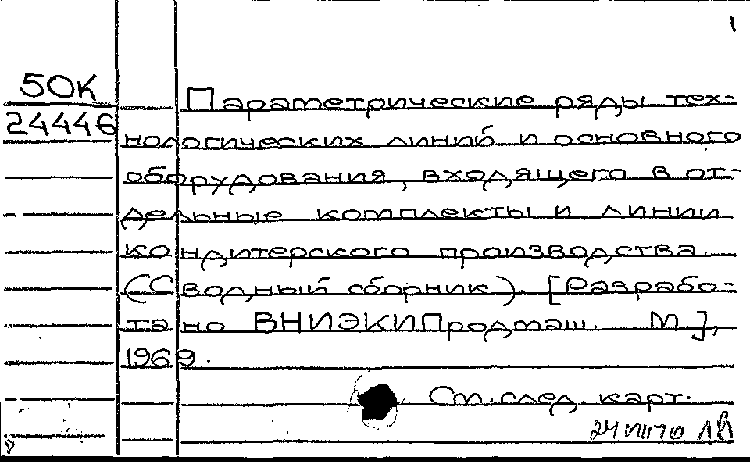 1
50К
24446
Параметрические ряды тех-
нологических линий и основного
оборудования, входящего в от-
дельные комплекты и линии
кондитерского производства
(Сводный сборник). [Разрабо-
тано ВНИЭКИПродмаш. М.],
1969.
См. след. карт.
24 VIII 70